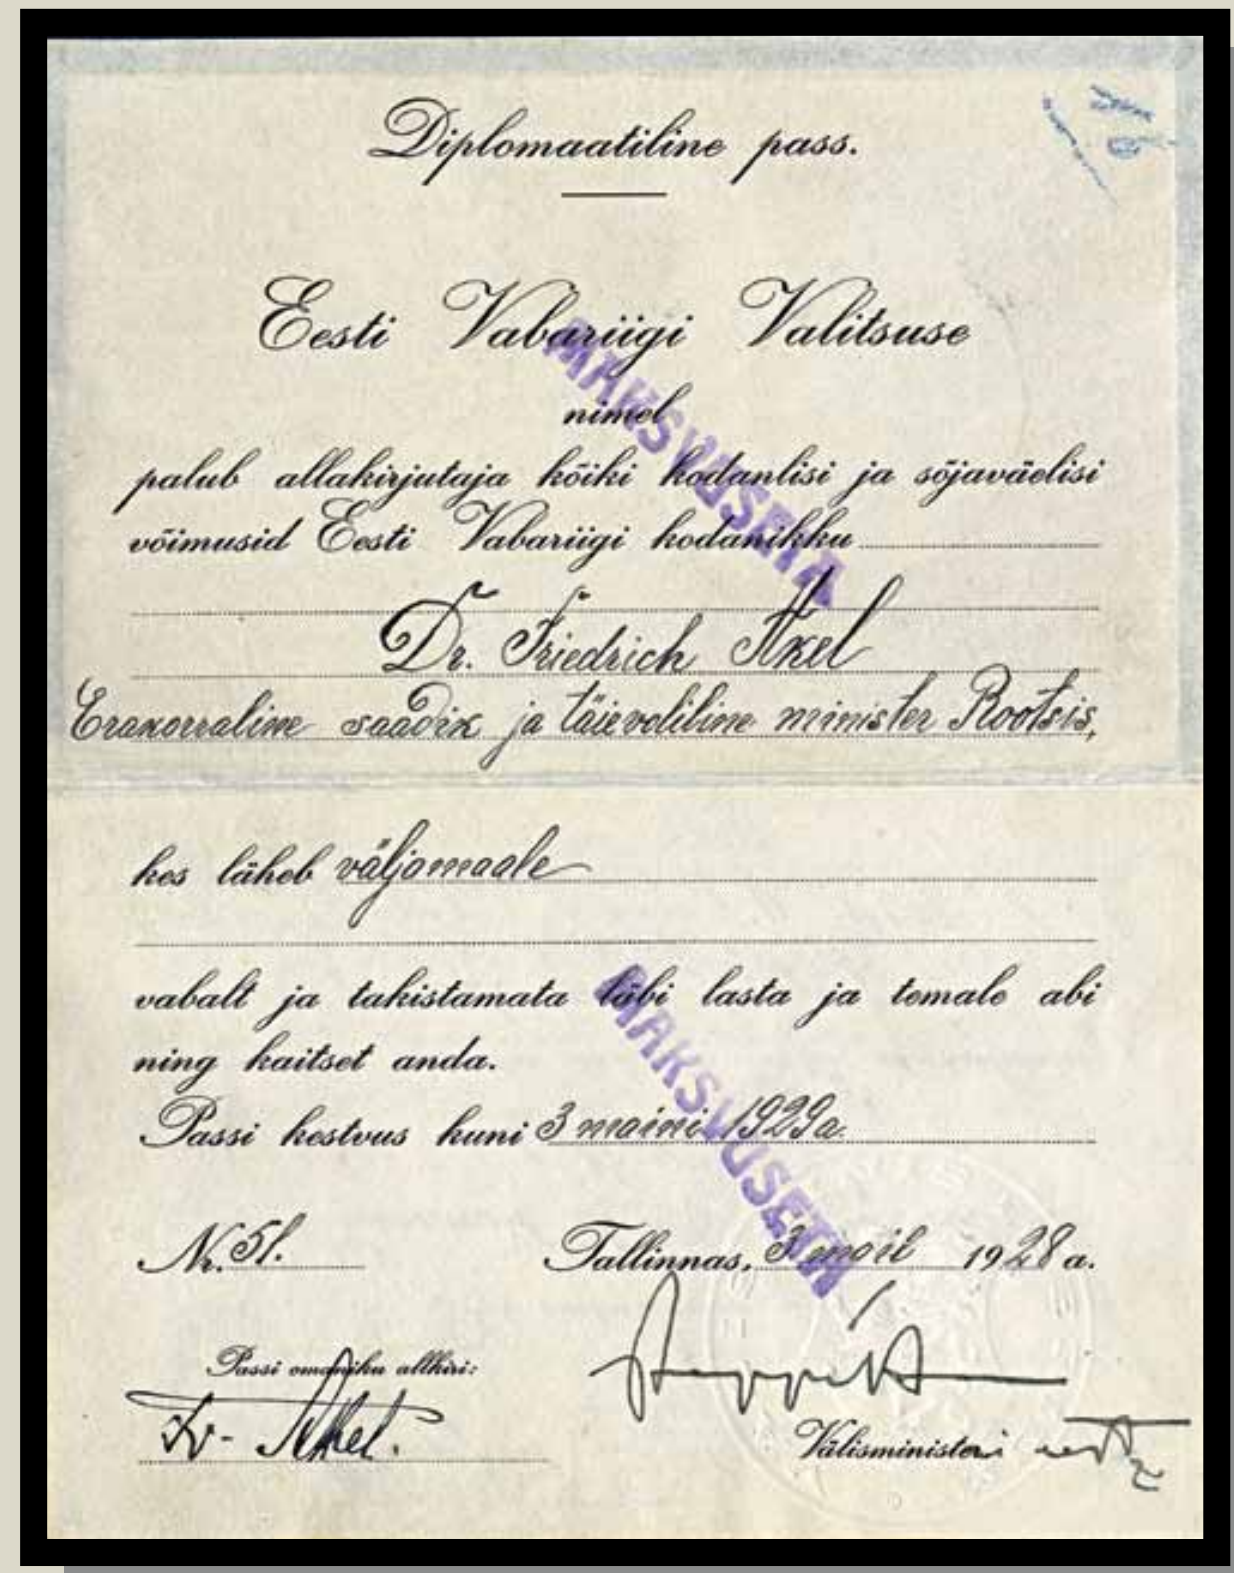 Diplomaatiline pass.
Eesti Vabariigi Valitsuse
nimel
palub allakirjutaja kõiki kodanlisi ja sõjaväelisi
võimusid Eesti Vabariigi kodanikku
Dr. Friedrich Akel
Erakorraline saadik ja täievoliline minister Rootsis,
kes läheb väljamaale
vabalt ja takistamata läbi lasta ja temale abi
ning kaitset anda.
Passi kestvus kuni 3 maini 1929a.
Nr. 51. Tallinnas, 3 mail 1928 a.
Passi omaniku allkiri:
Fr. Akel.
Välisministeri
MAKSVUSETA
MAKSVUSETA